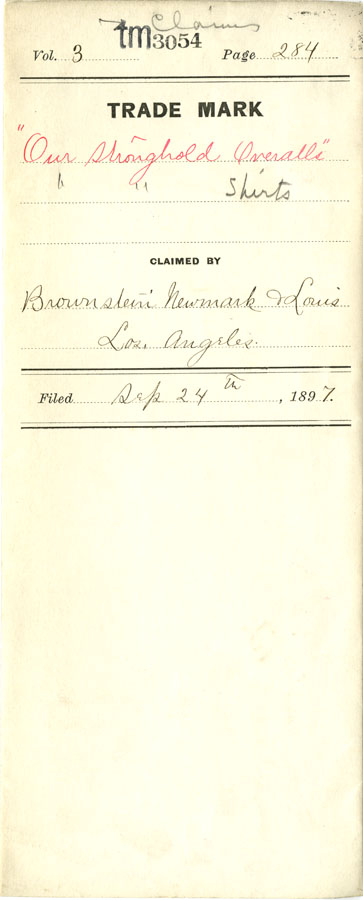 Claims
tm3054
Vol. 3 Page 284
TRADE MARK
"Our Stronghold Overalls"
" " Shirts
CLAIMED BY
Brownstein Newmark & Louis
Los. Angeles.
Filed Sep 24th, 1897.